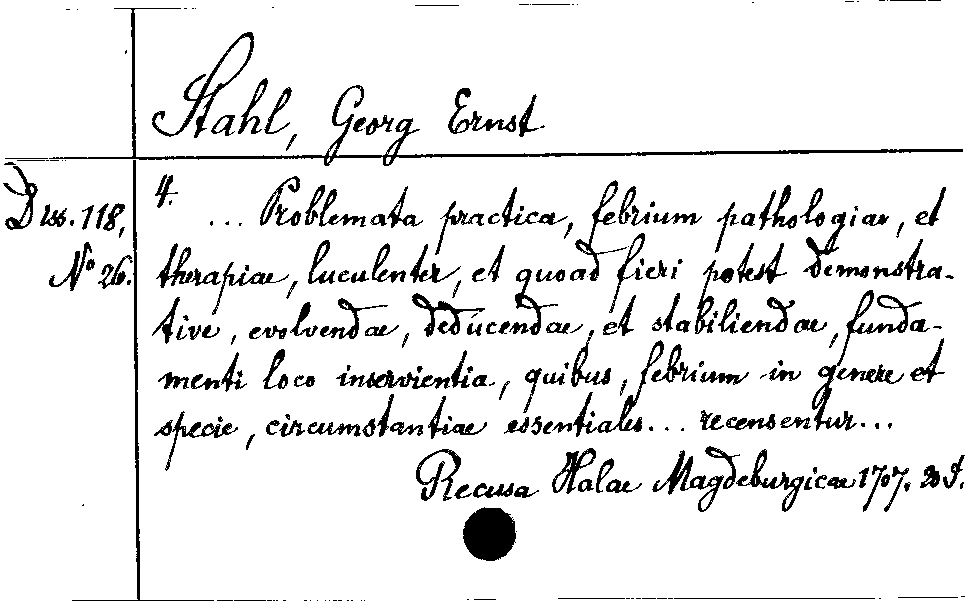 Stahl, Georg Ernst
Diss. 118,
No 26.
4.
... Problemata practica, febrium pathologiae, et
therapiae, luculenter, et quoad fieri potest demonstra-
tive, evolvendae, deducendae, et stabiliendae, funda-
menti loco inservientia, quibus, febrium in genere et
specie, circumstantiae essentiales... recensentur...
Recusa Halae Magdeburgicae 1707. 20 S.